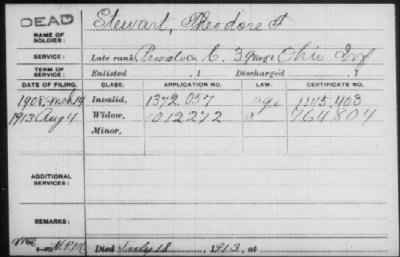 DEAD
NAME OF SOLDIER: Stewart, Theodore F
SERVICE: Late rank, Private Co. C, 39 Reg't Ohio Inf
TERM OF SERVICE: Enlisted , 1 Discharged , 1
DATE OF FILING. CLASS. APPLICATION NO. LAW. CERTIFICATE NO.
1908, Mch 14 Invalid, 1372.057 age 1145.403
1913 Aug 4 Widow, 1012272 764804
Minor,
ADDITIONAL SERVICES:
REMARKS:
Died July 18, 1913, at